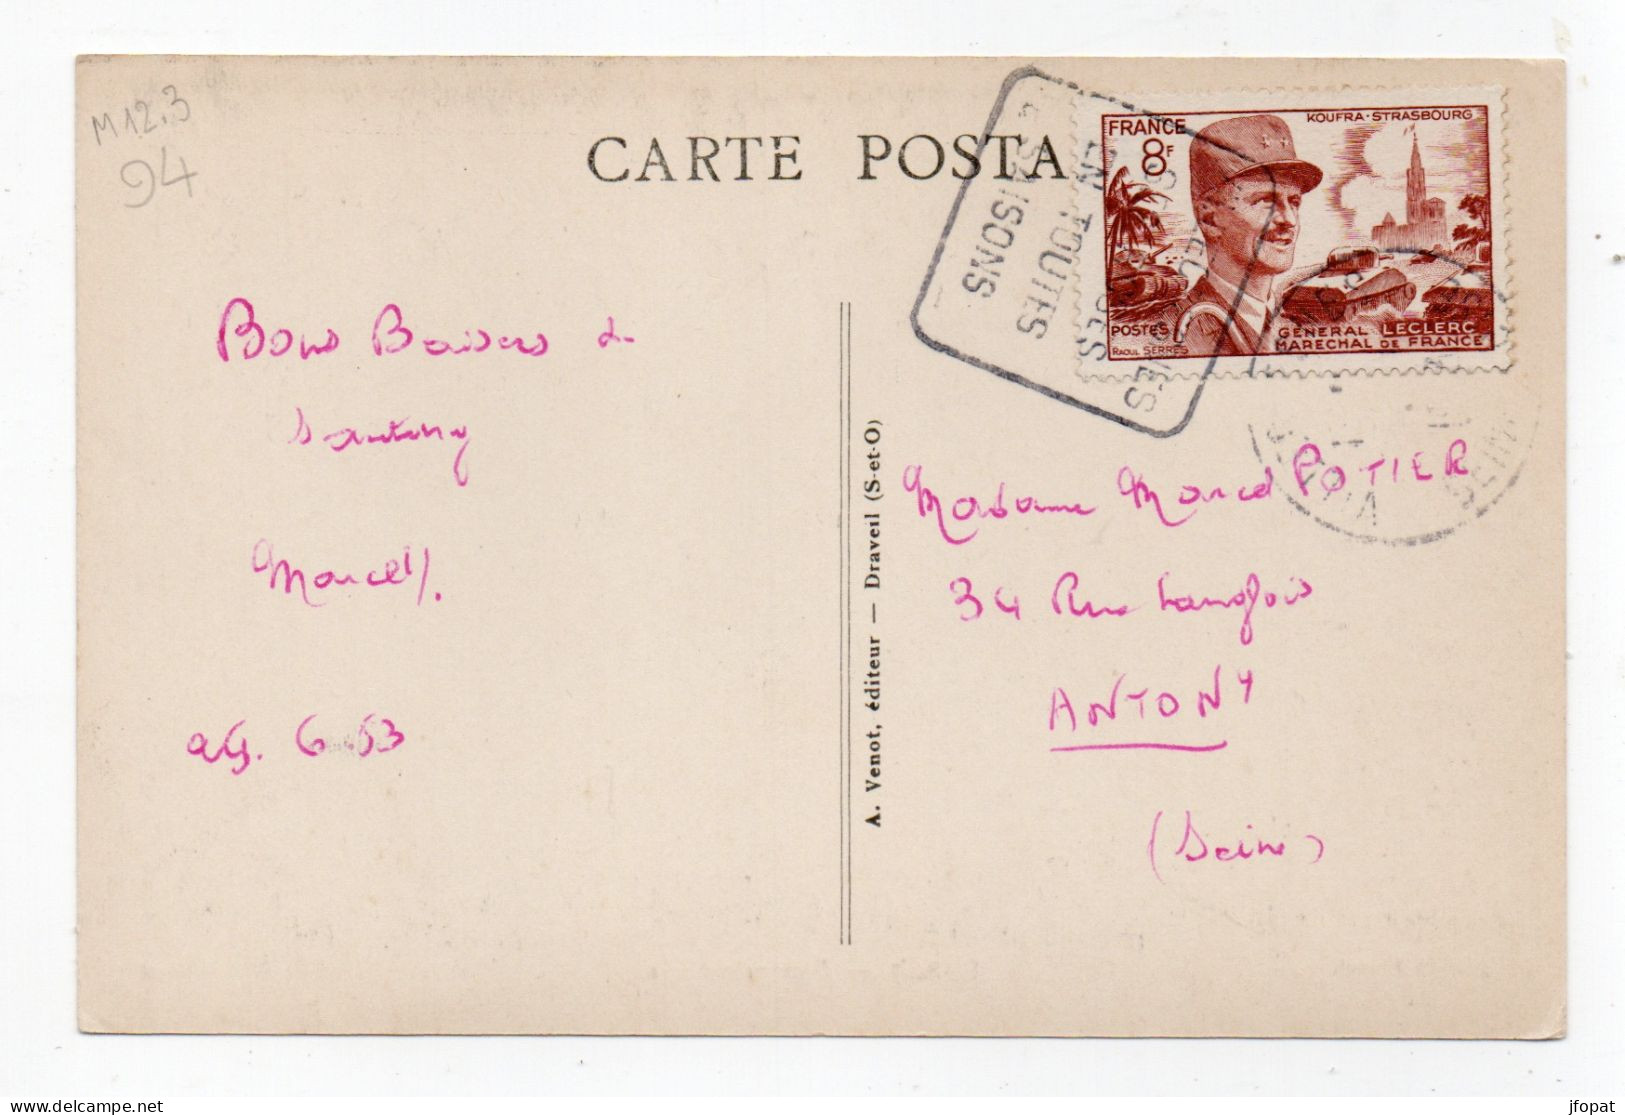 M12.3
94
CARTE POSTA
FRANCE
8F
KOUFRA-STRASBOURG
POSTES
RAOUL SERRES
GÉNÉRAL LECLERC
MARECHAL DE FRANCE
EN TOUTES
SAISONS
SEINE
Bons Baisers de
Santeny
Marcel.
26. 6.53
A. Venot, éditeur — Draveil (S-et-O)
Madame Marcel POTIER
34 Rue Langlois
ANTONY
(Seine)
jfopat